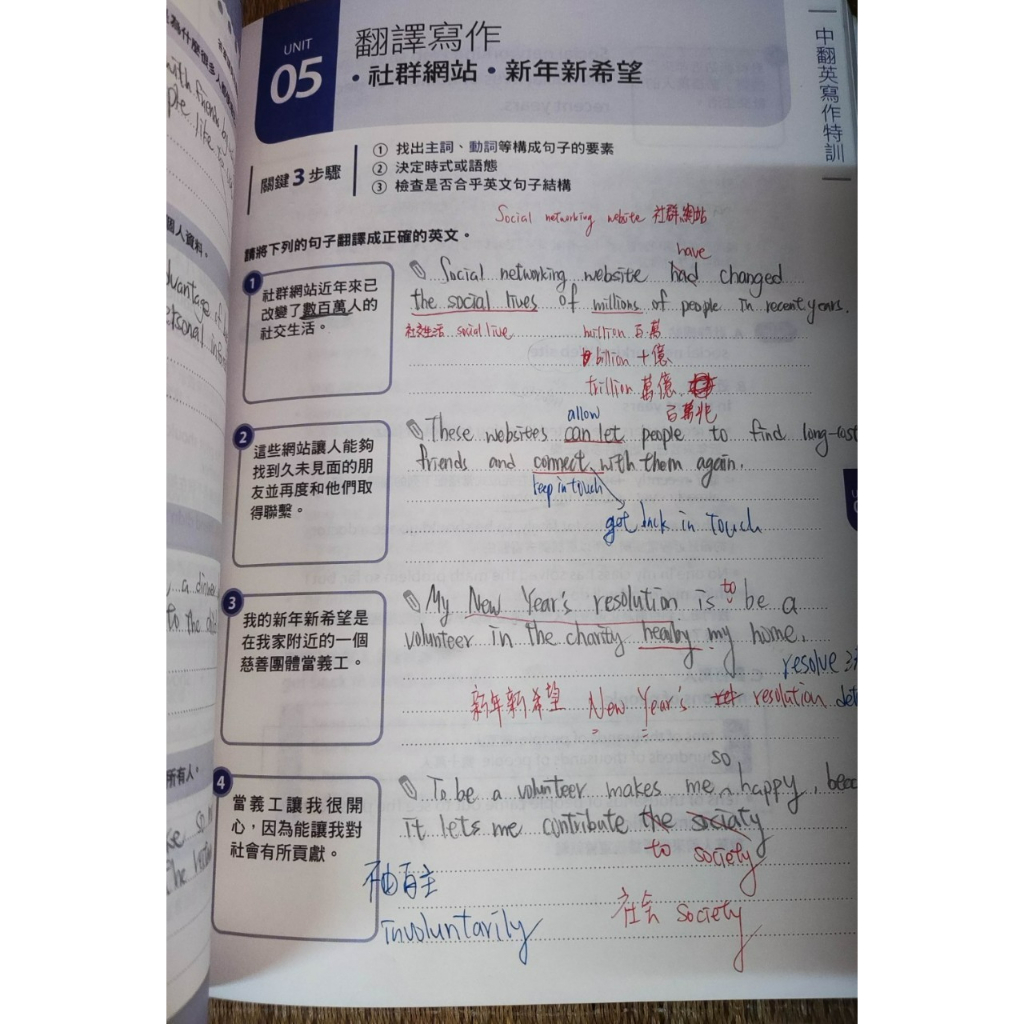 UNIT
05
翻譯寫作
・社群網站・新年新希望
中翻英寫作特訓
關鍵3步驟
① 找出主詞、動詞等構成句子的要素
② 決定時式或語態
③ 檢查是否合乎英文句子結構
Social networking website 社群網站
請將下列的句子翻譯成正確的英文。
1
社群網站近年來已
改變了數百萬人的
社交生活。
have
Social networking website had changed
the social lives of millions of people in recent years.
社交生活 social live
million 百萬
billion 十億
trillion 萬億
百萬兆
2
這些網站讓人能夠
找到久未見面的朋
友並再度和他們取
得聯繫。
allow
These websites can let people to find long-lost
friends and connect with them again.
keep in touch
get back in touch
3
我的新年新希望是
在我家附近的一個
慈善團體當義工。
to
My New Year's resolution is be a
volunteer in the charity nearby my home.
resolve
新年新希望 New Year's resolution
4
當義工讓我很開
心，因為能讓我對
社會有所貢獻。
so
To be a volunteer makes me happy, beca
it lets me contribute the sociaty
to society
involuntarily
社会 society
為什麼很多人
with friend by
ple like to
個人資料。
dvantage of
ersonal inform
a dinner
to the
所有人。